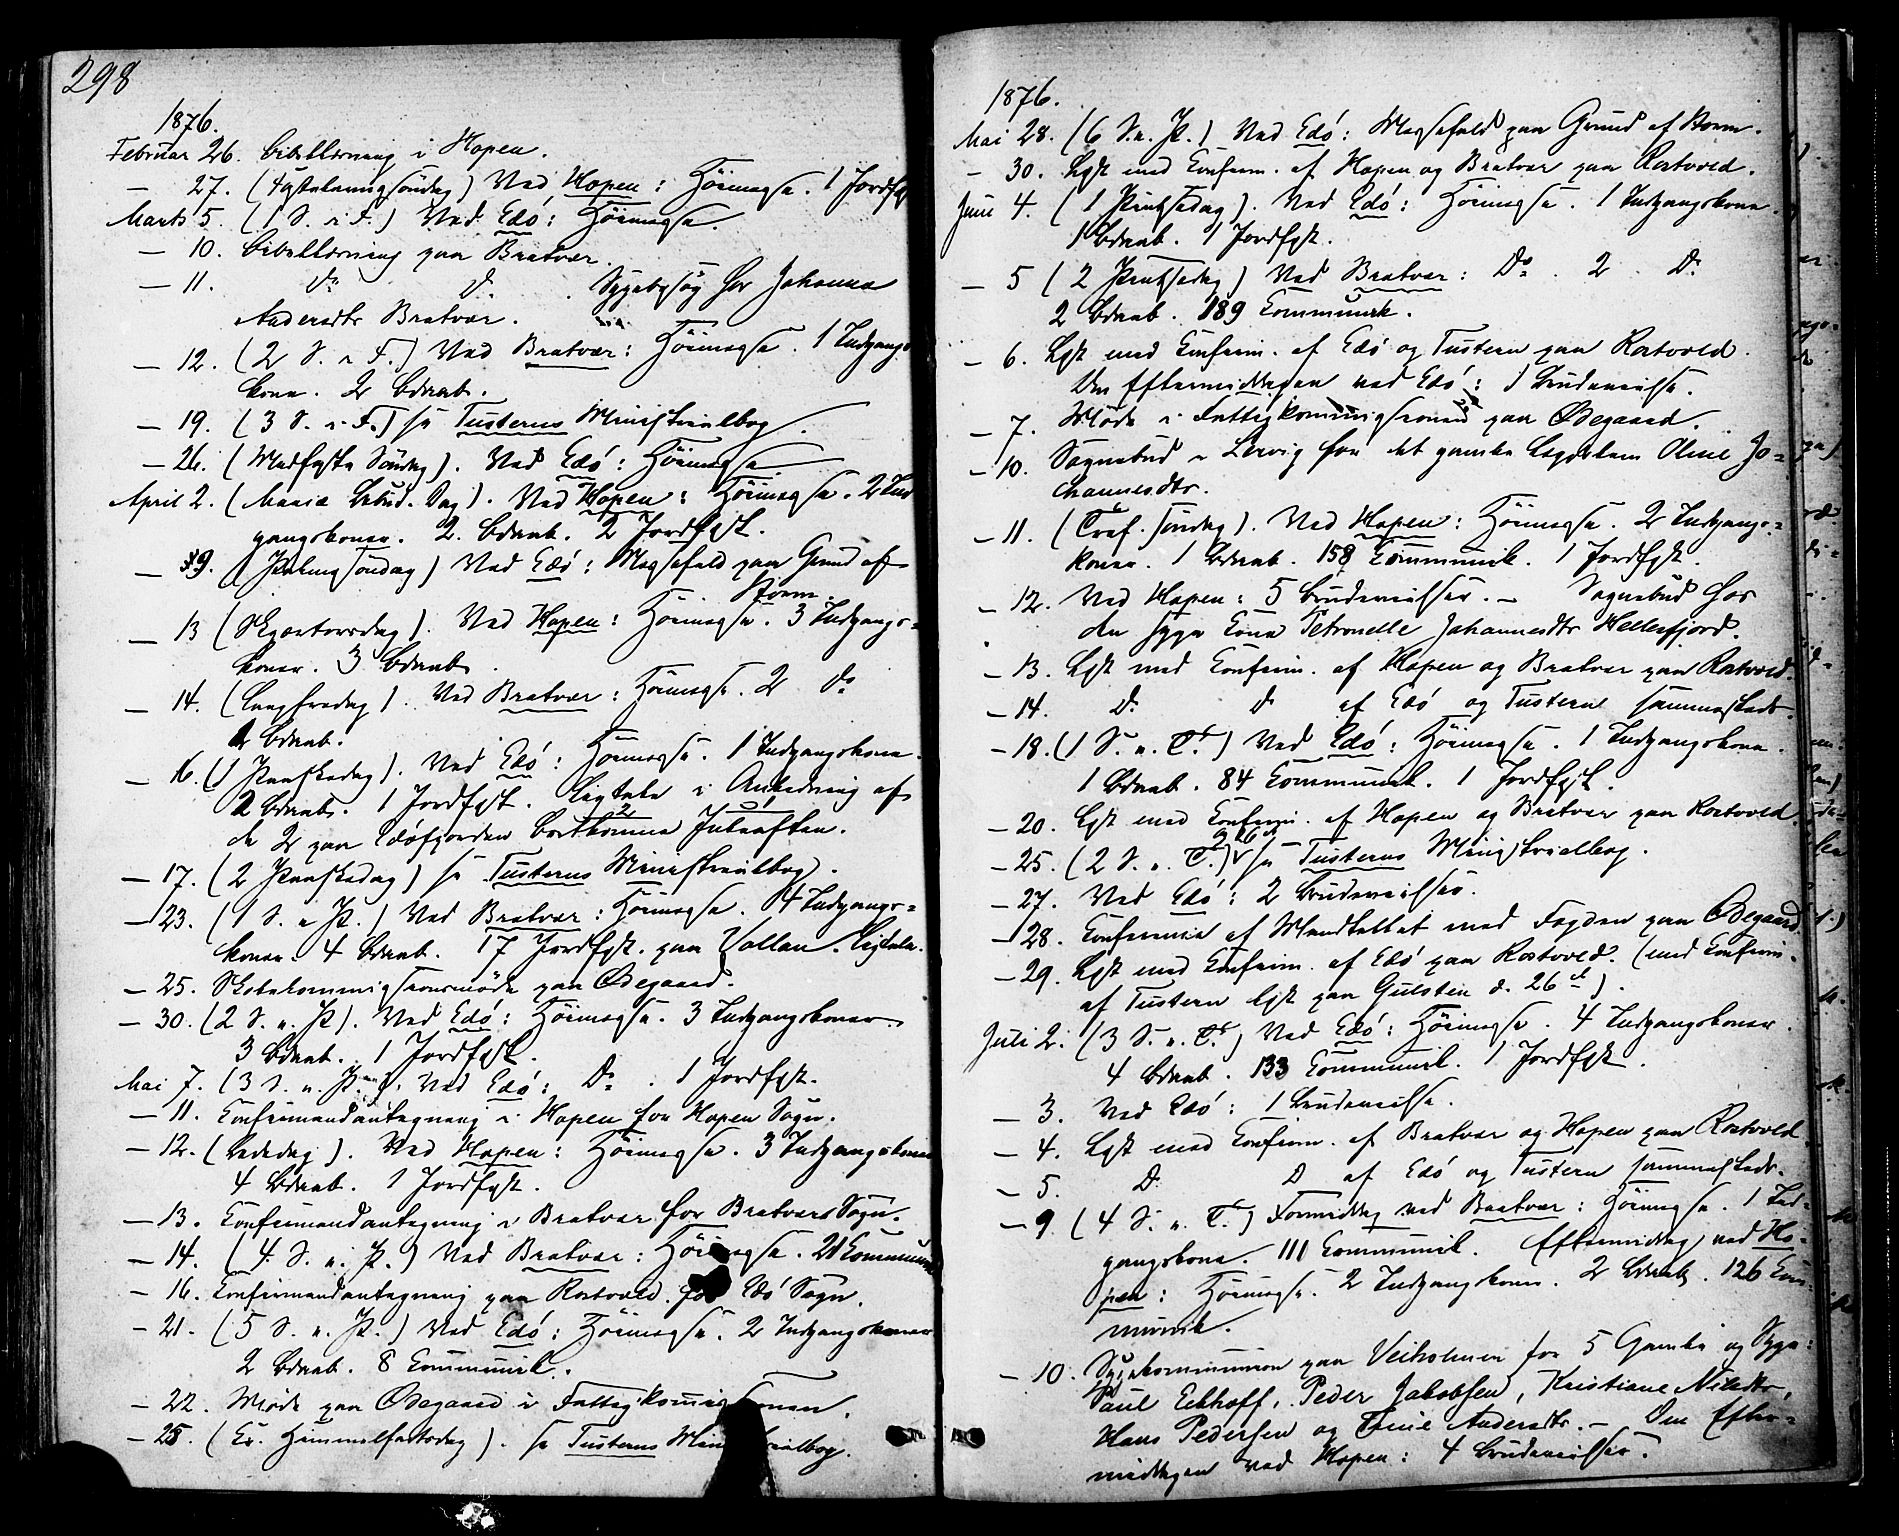 298
1876.
Februar 26. Bibellæsning i Hopen.
— 27. (Fastelavnssøndag) Ved Hopen: Høimesse. 1 Jordf
Marts 5. (1 S. i F.) Ved Edö: Høimesse.
— 10. Bibellæsning paa Bratvær.
— 11. Do Do. Sygebesøg hos Johanna
Andersdtr Bratvær.
— 12. (2 S. i F.) Ved Bratvær: Høimesse. 1 Indgangs
kone. 2 Bdaab.
— 19. (3 S. i F.) se Tusterns Ministerialbog.
— 26. (Midfaste Søndag). Ved Edö: Høimesse.
April 2. (Mariæ Bebud. Dag). Ved Hopen: Høimesse. 2 Ind
gangskoner. 2. Bdaab. 2 Jordfæst.
— 9. (Palmesøndag) Ved Edö: Messefald paa Grund af
Storm.
— 13 (Skjærtorsdag). Ved Hopen: Høimesse. 3 Indgangs-
koner. 3 Bdaab.
— 14. (Langfredag). Ved Bratvær: Høimesse. 2 Do
2 Bdaab.
— 16. (1 Paaskedag). Ved Edö: Høimesse. 1 Indgangskone.
2 Bdaab. 1 Jordfæst. Ligtale i Anledning af
de 2 paa Edöfjorden bortkomne Juleaften.
— 17. (2 Paaskedag) se Tusterns Ministerialbog.
— 23. (1 S. e. P.) Ved Bratvær: Høimesse. 4 Indgangs-
koner. 4 Bdaab. 17 Jordfæst. paa Vollan. Ligtale.
— 25. Skolekommissionsmøde paa Ødegaard.
— 30. (2 S. e. P.). Ved Edö: Høimesse. 3 Indgangskoner.
3 Bdaab. 1 Jordfæst.
Mai 7. (3 S. e. P.). Ved Edö: Do. 1 Jordfæst.
— 11. Konfirmandantegning i Hopen for Hopen Sogn.
— 12. (Bededag). Ved Hopen: Høimesse. 3 Indgangskoner
4 Bdaab. 1 Jordfæst.
— 13. Konfirmandantegning i Bratvær for Bratvær Sogn.
— 14. (4. S. e. P.) Ved Bratvær: Høimesse. 21 Commun
— 16. Konfirmandantegning paa Rostvold. for Edö Sogn.
— 21. (5 S. e. P.) Ved Edö: Høimesse. 2 Indgangskoner
2 Bdaab. 8 Communik.
— 22. Møde paa Ødegaard i Fattigkommissionen.
— 25. (Cr. Himmelfartsdag). se Tusterns Ministerialbog.
1876.
Mai 28. (6 S. e. P.) Ved Edö: Messefald paa Grund af Storm.
— 30. Læst med Confirm. af Hopen og Bratvær paa Rostvold.
Juni 4. (1 Pintsedag). Ved Edö: Høimesse. 1 Indgangskone.
1 Bdaab. 1 Jordfæst.
— 5 (2 Pintsedag) Ved Bratvær: Do. 2 Do
2 Bdaab. 189 Communik.
— 6. Læst med Confirm. af Edö og Tustern paa Rostvold.
Om Eftermiddagen ved Edö: 1 Brudevielse.
— 7. Møde i Fattigkommissionen paa Ødegaard.
— 10. Sognebud i Lervig for det gamle Lægdslem Oline Jo-
hannesdtr.
— 11. (Tref. søndag). Ved Hopen: Høimesse. 2 Indgangs-
koner. 1 Bdaab. 158 Communik. 1 Jordfæst.
— 12. Ved Hopen: 5 Brudevielser. — Sognebud hos
den syge Kone Petronelle Johannesdtr Hellesfjord.
— 13. Læst med Confirm. af Hopen og Bratvær paa Rostvold.
— 14. D. D af Edö og Tustern sammesteds.
— 18. (1 S. e. T.) Ved Edö: Høimesse. 1 Indgangskone.
1 Bdaab. 84 Communik. 1 Jordfæst.
— 20. Læst med Confirm. af Hopen og Bratvær paa Rostvold.
— 25. (2 S. e. T.) og 26d se Tusterns Ministerialbog.
— 27. Ved Edö: 2 Brudevielser.
— 28. Conference af Mandtallet med Fogden paa Ødegaard
— 29. Læst med Confirm. af Edö paa Rostvold. (med Confirm.
af Tustern læst paa Gulsten d. 26d).
Juli 2. (3 S. e. T.) Ved Edö: Høimesse. 4 Indgangskoner.
4 Bdaab. 133 Communik. 1 Jordfæst.
— 3. Ved Edö: 1 Brudevielse.
— 4. Læst med Confirm. af Bratvær og Hopen paa Rostvold.
— 5. D D af Edö og Tustern sammesteds.
— 9 (4 S. e. T.) Formiddag ved Bratvær: Høimesse. 1 Ind-
gangskone. 111 Communik. Eftermiddag ved Ho-
pen: Høimesse. 2 Indgangskoner. 2 Bdaab. 126 Com-
munik.
— 10. Sygekommunion paa Veiholmen for 5 Gamle og Syge:
Paul Ebhoff, Peder Jakobsen, Kristiane Nilsdtr,
Hans Pedersen og Trine Andersdtr. — Om Efter-
middagen ved Hopen: 4 Brudevielser.